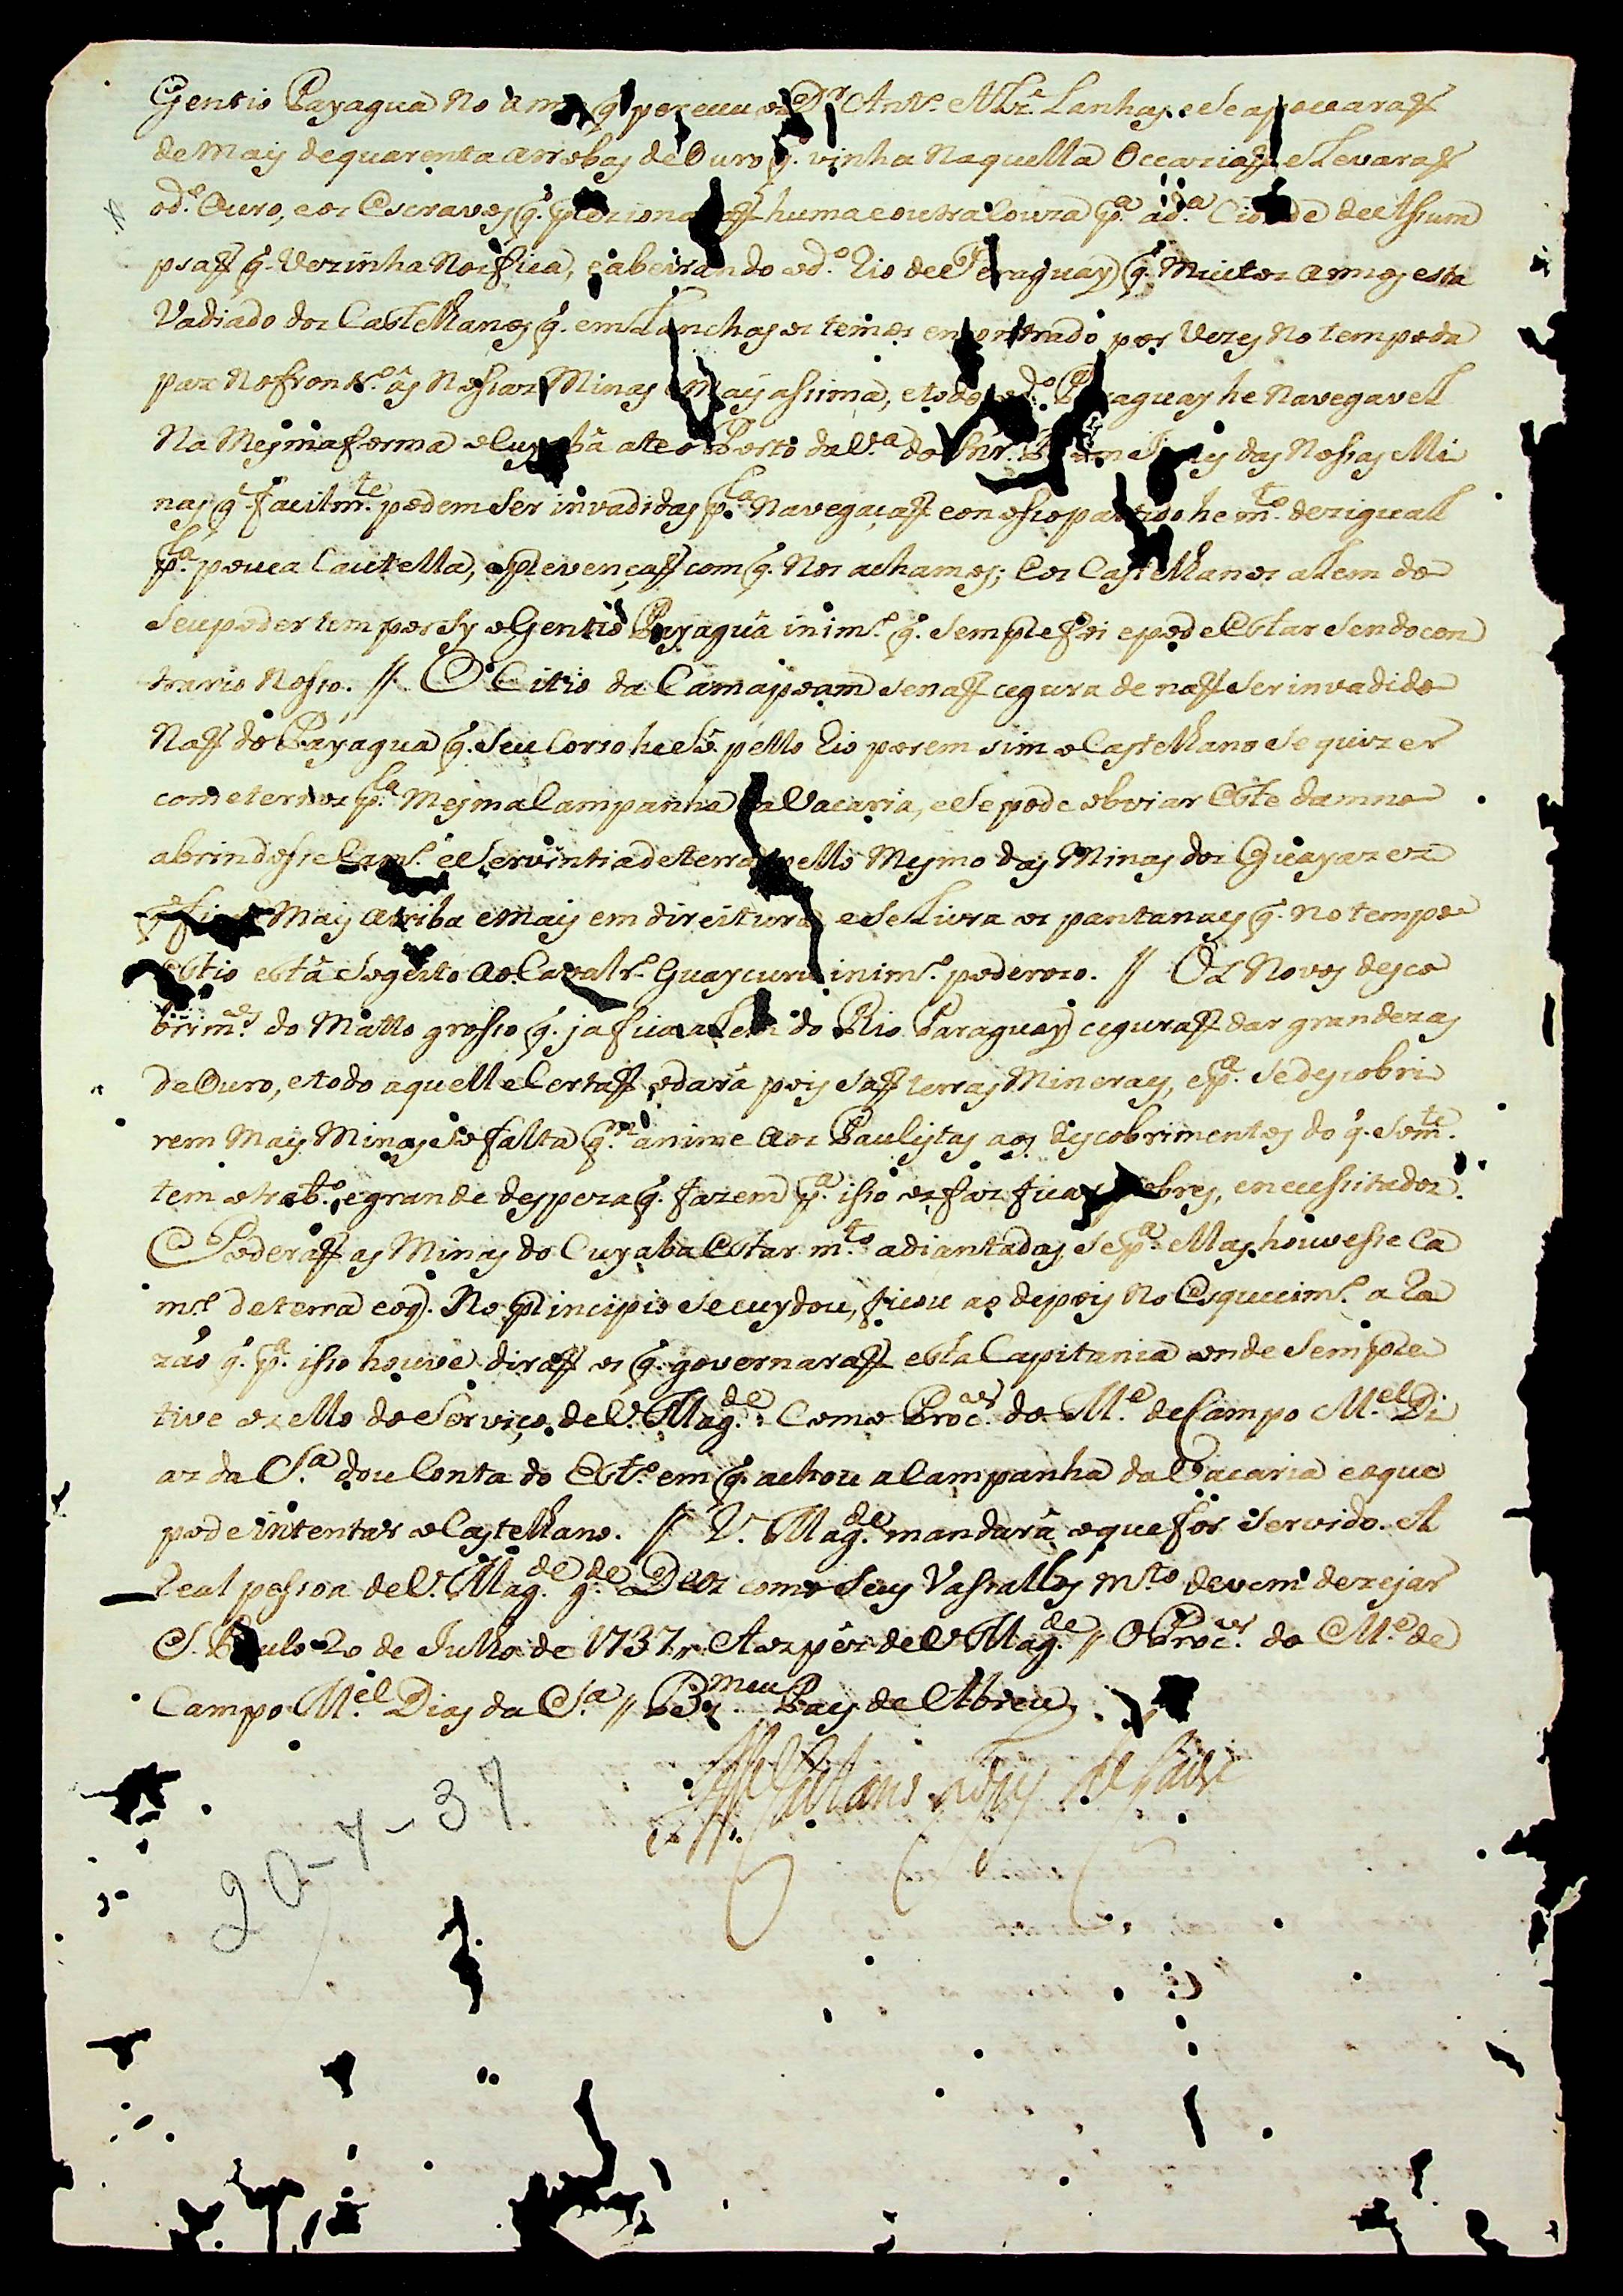 Gentio Payagua no anno q̃ pereceu o Dr Antº Alz.ᵉ Lanhas, e Se apoceraraõ
de Mais de quarenta arrobas de Ouro q̃. vinha naquella Occaziaõ e Levaraõ
o d.º Ouro, e os Escravos q̃. prezionaraõ huma e outra Couza p.ª a d.ª Cidade de Assum
psaõ q̃. Vezinha Nos fica, e abeirando o d.º Rio de Paraguay q̃. Muitos annos está
Vadiado dos Castelhanos q̃. em Lanchas os temos encontrado por Vezes no tempo da
paz No fronteº. ás Nossas Minas e Mais assima, e todo o d.º Paraguay he Navegavel
Na Mesma forma o Cuyabá ate o Porto da V.ª do Snr. Bom Jesus das Nossas Mi
nas q̃ facilm.te podem Ser invadidas p.la Navegaçaõ e o nosso partido he m.to deziguall
p.la pouca Cautella, e prevençaõ com q̃. Nos achamos; E os Castelhanos alem do
Seu poder tem por sy o Gentio Payaguá inim.º q̃. Sempre foi e pode Estar Sendo con
trario Nosso. // O Citio da Camapoam se naõ cegura de naõ Ser invadido
Naõ do Payagua q̃. Seu Corso he Só pello Rio porem sim o Castelhano Se quizer
cometernos p.la Mesma Campanha da Vacaria, e Se pode obviar Este damno
abrindosse Cam.º e Serventia de terra pello Mesmo das Minas dos Guayazes
q̃ fica Mais arriba e Mais em direitura, e Se Livra os pantanaes q̃. no tempo
Estio está Sogeito ao Cavalr.º Guaycuru inim.º poderozo. // Os Novos desco
brim.tos do Matto grosso q̃. ja fica alem do Rio Paraguay ceguraõ dar grandezas
de Ouro, e todo aquelle Certaõ o dará pois Saõ terras Mineraes, e p.ª Se descobri
rem Mais Minas So falta q.m anime aos Paulistas aos descobrimentos do q̃. Som.te
tem o trab.º, e grande despeza q̃. fazem p.ª isso os faz ficar pobres, e necessitados.
E Poderáõ as Minas do Cuyaba Estar m.to adiantadas Se p.ª ellas houvesse Ca
m.º de terra e o q̃. No principio Se cuydou, ficou ao depois no Esquecim.º a Ra
zaó q̃. p.ª isso houve diraõ os q̃. governaraõ esta Capitania onde Sempre
tive o zello do Serviço de V. Mag.de. Como Proc.or do M.e de Campo M.el Di
as da S.ª dou Conta do Est.º em q̃. achou a Campanha da Vacaria e o que
pode intentar o Castelhano. // V. Mag.de mandará o que for Servido. A
Real pessoa de V. Mag.de g.de Deos como Seus Vassallos m.to devemos dezejar
S. Paulo 20 de Julho de 1737 // Aos pés de V. Mag.de // O Proc.or do M.e de
Campo M.el Dias da S.ª // B.meu Pays de Abreu
20-7-37